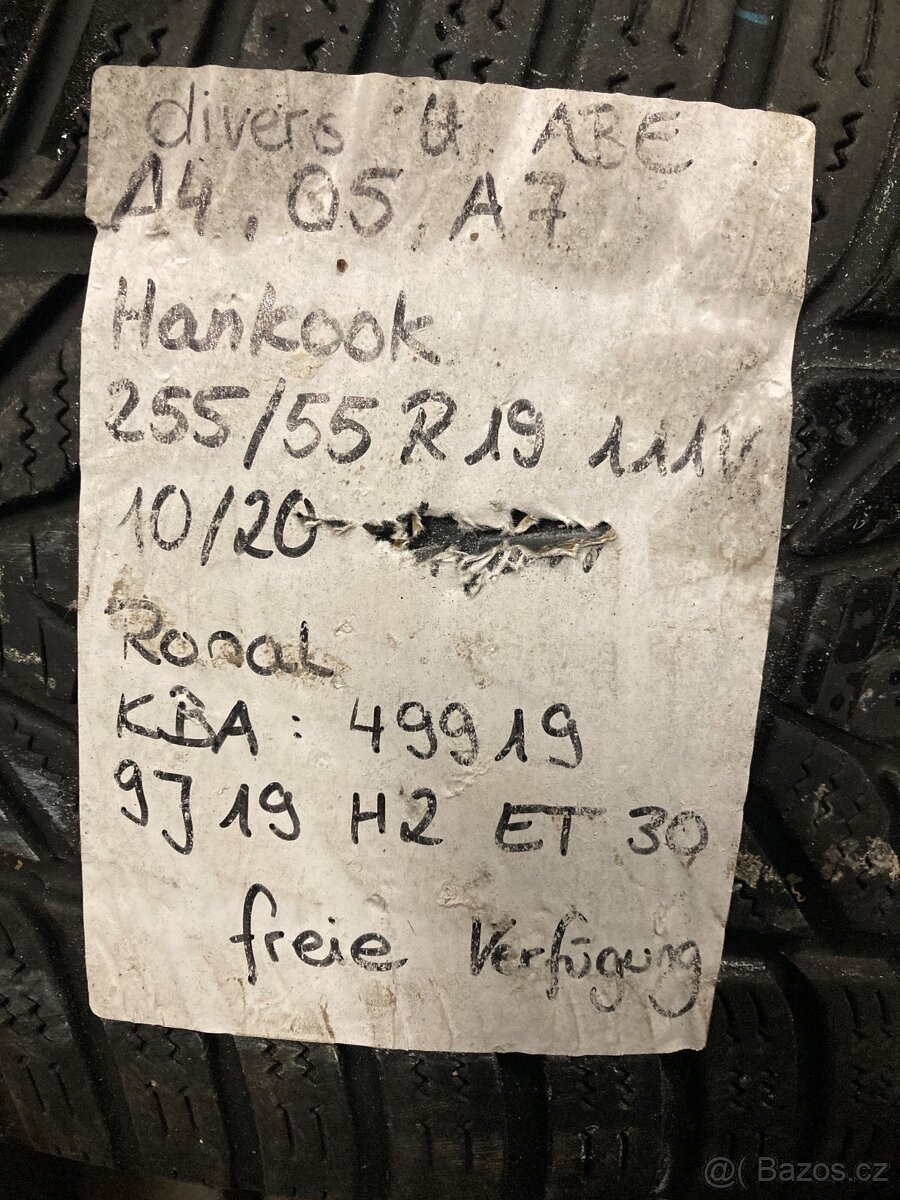 divers u. ABE
A4, Q5, A7
Hankook
255/55 R 19 111V
10/20
Ronal
KBA: 49919
9J 19 H2 ET 30
freie Verfügung
@( Bazos.cz